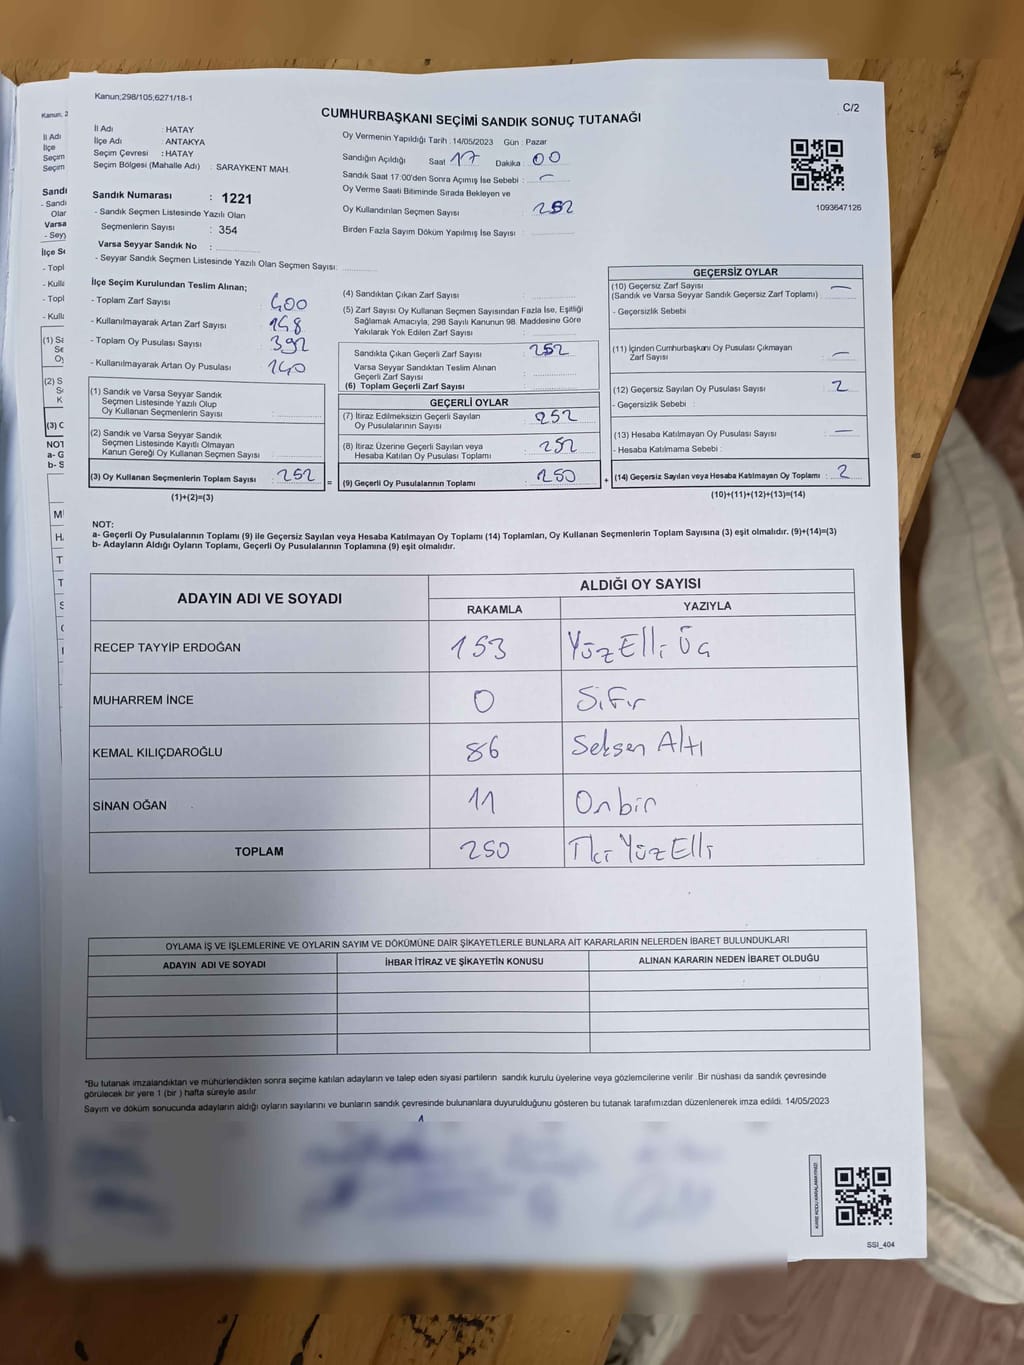 Kanun;298/105,6271/18-1
C/2
CUMHURBAŞKANI SEÇİMİ SANDIK SONUÇ TUTANAĞI
İl Adı : HATAY
İlçe Adı : ANTAKYA
Seçim Çevresi : HATAY
Seçim Bölgesi (Mahalle Adı) : SARAYKENT MAH.
Sandık Numarası : 1221
- Sandık Seçmen Listesinde Yazılı Olan
Seçmenlerin Sayısı : 354
Varsa Seyyar Sandık No :
- Seyyar Sandık Seçmen Listesinde Yazılı Olan Seçmen Sayısı:
Oy Vermenin Yapıldığı Tarih : 14/05/2023 Gün : Pazar
Sandığın Açıldığı Saat 17 Dakika : 00
Sandık Saat 17:00'den Sonra Açımış İse Sebebi : -
Oy Verme Saati Bitiminde Sırada Bekleyen ve
Oy Kullandırılan Seçmen Sayısı : 252
Birden Fazla Sayım Döküm Yapılmış İse Sayısı :
1093647126
İlçe Seçim Kurulundan Teslim Alınan;
- Toplam Zarf Sayısı : 400
- Kullanılmayarak Artan Zarf Sayısı : 148
- Toplam Oy Pusulası Sayısı : 392
- Kullanılmayarak Artan Oy Pusulası : 140
(1) Sandık ve Varsa Seyyar Sandık
Seçmen Listesinde Yazılı Olup
Oy Kullanan Seçmenlerin Sayısı :
(2) Sandık ve Varsa Seyyar Sandık
Seçmen Listesinde Kayıtlı Olmayan
Kanun Gereği Oy Kullanan Seçmen Sayısı :
(3) Oy Kullanan Seçmenlerin Toplam Sayısı : 252
(1)+(2)=(3)
=
(4) Sandıktan Çıkan Zarf Sayısı :
(5) Zarf Sayısı Oy Kullanan Seçmen Sayısından Fazla İse, Eşitliği
Sağlamak Amacıyla, 298 Sayılı Kanunun 98. Maddesine Göre
Yakılarak Yok Edilen Zarf Sayısı :
Sandıkta Çıkan Geçerli Zarf Sayısı : 252
Varsa Seyyar Sandıktan Teslim Alınan
Geçerli Zarf Sayısı :
(6) Toplam Geçerli Zarf Sayısı :
GEÇERLİ OYLAR
(7) İtiraz Edilmeksizin Geçerli Sayılan
Oy Pusulasının Sayısı : 252
(8) İtiraz Üzerine Geçerli Sayılan veya
Hesaba Katılan Oy Pusulası Toplamı : 252
(9) Geçerli Oy Pusulalarının Toplamı : 250
+
GEÇERSİZ OYLAR
(10) Geçersiz Zarf Sayısı : -
(Sandık ve Varsa Seyyar Sandık Geçersiz Zarf Toplamı)
- Geçersizlik Sebebi :
(11) İçinden Cumhurbaşkanı Oy Pusulası Çıkmayan
Zarf Sayısı : -
(12) Geçersiz Sayılan Oy Pusulası Sayısı : 2
- Geçersizlik Sebebi :
(13) Hesaba Katılmayan Oy Pusulası Sayısı : -
- Hesaba Katılmama Sebebi :
(14) Geçersiz Sayılan veya Hesaba Katılmayan Oy Toplamı : 2
(10)+(11)+(12)+(13)=(14)
NOT:
a- Geçerli Oy Pusulalarının Toplamı (9) ile Geçersiz Sayılan veya Hesaba Katılmayan Oy Toplamı (14) Toplamları, Oy Kullanan Seçmenlerin Toplam Sayısına (3) eşit olmalıdır. (9)+(14)=(3)
b- Adayların Aldığı Oyların Toplamı, Geçerli Oy Pusulalarının Toplamına (9) eşit olmalıdır.
ADAYIN ADI VE SOYADI
ALDIĞI OY SAYISI
RAKAMLA YAZIYLA
RECEP TAYYİP ERDOĞAN 153 Yüz Elli Üç
MUHARREM İNCE 0 Sıfır
KEMAL KILIÇDAROĞLU 86 Seksen Altı
SİNAN OĞAN 11 Onbir
TOPLAM 250 İki Yüz Elli
OYLAMA İŞ VE İŞLEMLERİNE VE OYLARIN SAYIM VE DÖKÜMÜNE DAİR ŞİKAYETLERLE BUNLARA AİT KARARLARIN NELERDEN İBARET BULUNDUKLARI
ADAYIN ADI VE SOYADI İHBAR İTİRAZ VE ŞİKAYETİN KONUSU ALINAN KARARIN NEDEN İBARET OLDUĞU
*Bu tutanak imzalandıktan ve mühürlendikten sonra seçime katılan adayların ve talep eden siyasi partilerin sandık kurulu üyelerine veya gözlemcilerine verilir. Bir nüshası da sandık çevresinde
görülecek bir yere 1 (bir ) hafta süreyle asılır.
Sayım ve döküm sonucunda adayların aldığı oyların sayılarını ve bunların sandık çevresinde bulunanlara duyurulduğunu gösteren bu tutanak tarafımızdan düzenlenerek imza edildi. 14/05/2023
SSI_404